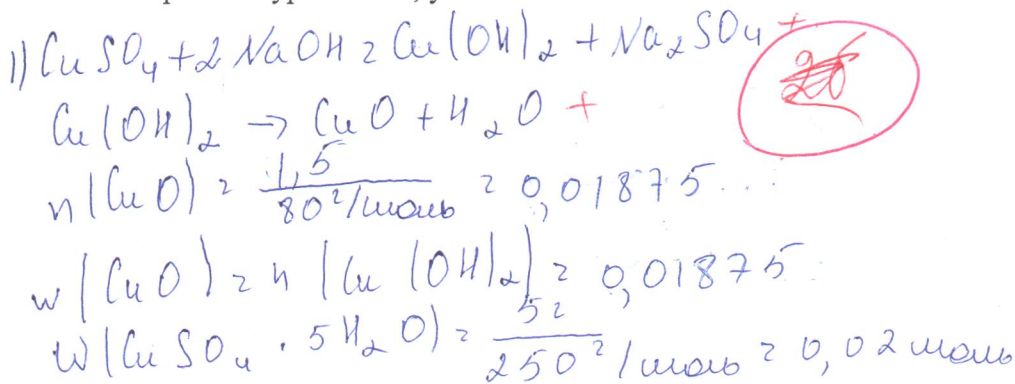 1) CuSO₄ + 2 NaOH = Cu(OH)₂ + Na₂SO₄ +
Cu(OH)₂ → CuO + H₂O +
n(CuO) = 1,5 / 80 г/моль = 0,01875...
w(CuO) = n(Cu(OH)₂) = 0,01875
W(CuSO₄ · 5H₂O) = 5г / 250 г/моль = 0,02 моль